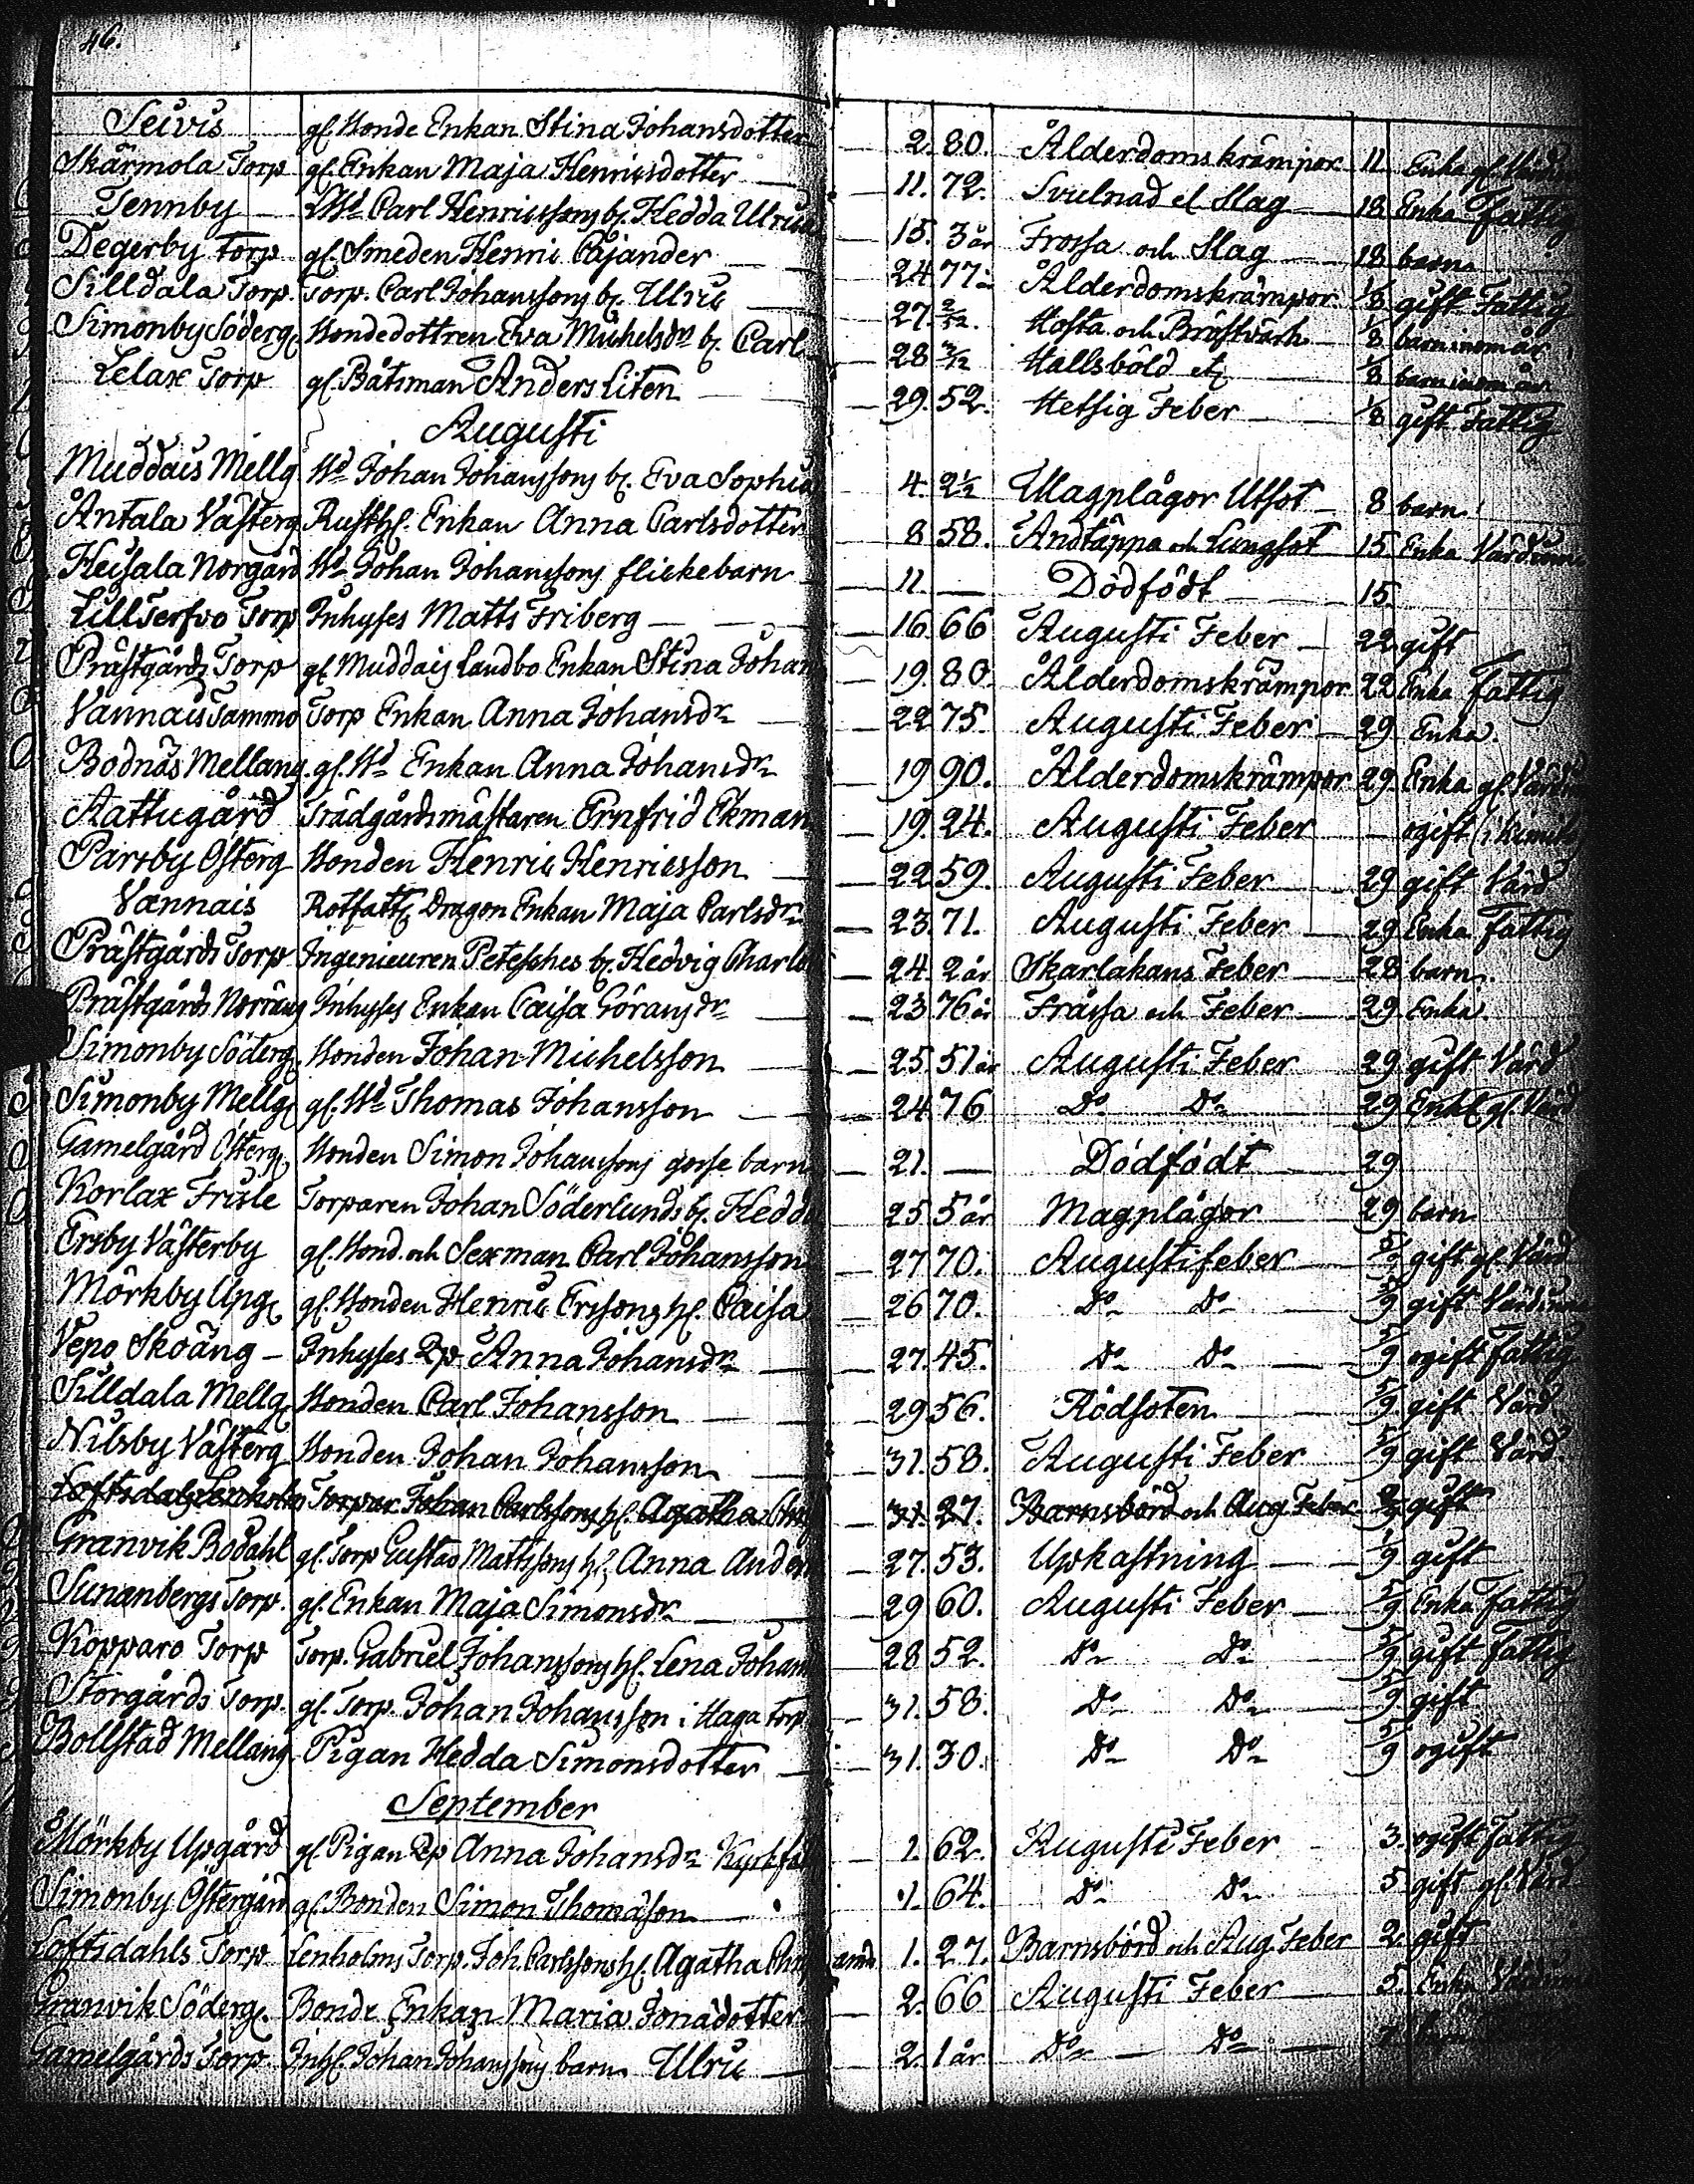 46.
Seivis gl. Bonde Enkan Stina Johansdotter 2. 80. Ålderdoms krämpor 11 Enka gl.
Skärmola Torp gl. Enkan Maja Henricsdotter 11. 72. Svulnad el Slag 18 Enka Fattig
Tennby Carl Henricssons b. Hedda Ulrica 15. 3 år Frossa och Slag 18 barn
Degerby Torp gl. Smeden Henric Cajander 24 77 Ålderdomskrämpor 1/8 gift Fattig
Silldala Torp. Torp. Carl Johanssons b. Ulric 27. 2/12. Hosta och Bröstvärk 1/8 barn inom år
Simonby Söderg Bondedottren Eva Michelsdr b. Carl 28 3/12 Hallsböld etc 1/8 barn inom år
Lelax Torp gl. Båtsman Anders Liten 29. 52. Hetsig Feber 1/8 gift Fattig
Augusti
Muddais Mellg Bd Johan Johanssons b. Eva Sophia 4. 2½ Magplågor Utsot 8 barn
Antala Västerg Rusth. Enkan Anna Carlsdotter 8 58. Andtäppa och Lungsot 15. Enka
Heisala Norgård Bd Johan Johanssons flickebarn 11. — Dödfödt 15.
LillTerfvo Torp Inhyses Matts Friberg 16 66 Augusti Feber 22 gift
Prästgårds Torp gl. Muddais Landbo Enkan Stina Johan 19. 80. Ålderdomskrämpor 22 Enka Fattig
Vännais Tammo Torp Enkan Anna Johansdr 22 75. Augusti Feber 29 Enka.
Bodnäs Mellang. gl. Bd Enkan Anna Johansdr 19 90. Ålderdomskrämpor 29. Enka gl.
Aattugård Trädgårdsmästaren Ernfrid Ekman 19. 24. Augusti Feber — ogift
Parsby Österg Bonden Henric Henricsson 22 59. Augusti Feber 29 gift Värd
Vännais Rotfatt Dragon Enkan Maja Carlsdr 23. 71. Augusti Feber 29 Enka Fattig
Prästgårds Torp Ingenieuren Petesches b. Hedvig Charlo 24. 2 år Skarlakans Feber 28 barn.
Prästgårds Norräng Inhyses Enkan Caisa Göransdr 23 76 år Frässa och Feber 29 Enka.
Simonby Söderg. Bonden Johan Michelsson 25. 51 år Augusti Feber 29 gift Värd
Simonby Mellg gl. Bd Thomas Johansson 24 76 Do Do 29 Enkl gl. Värd
Gamelgård Österg Bonden Simon Johanssons gosse barn 21. — Dödfödt 29
Korlax Frisle Torparen Johan Söderlunds b. Hedda 25 5 år Magplågor 29 barn
Ersby Västerby gl. Bond. och Sexman Carl Johansson 27 70. Augustifeber 5/9 gift gl. Värd
Mörkby Upg gl. Bonden Henric Ersons h. Caisa 26 70. Do Do 5/9 gift Värdinna
Vepo Skoäng Inhyses Qp Anna Johansdr 27. 45. Do Do 5/9 ogift Fattig
Silldala Mellg Bonden Carl Johansson 29 56. Rödsoten 5/9. gift Värd
Nilsby Västerg Bonden Johan Johansson 31. 58. Augusti Feber 5/9 gift Värd
Loftsdahl Lenholm Torpar. Johan Carlssons h. Agatha 31. 27. Barnsbörd och Aug Feber 2/9 gift
Granvik Bodahl gl. Torp Gustav Mattssons h. Anna Anders 27. 53. Upkastning 1/9 gift
Sunanbergs Torp. gl. Enkan Maja Simonsdr 29 60. Augusti Feber 5/9 Enka Fattig
Kopparo Torp Torp. Gabriel Johanssons h. Lena Johans 28 52. Do Do 5/9 gift Fattig
Storgårds Torp. gl. Torp. Johan Johansson i Haga torp 31. 58. Do Do 5/9 gift
Bollstad Mellang Pigan Hedda Simonsdotter 31. 30. Do Do 5/9 ogift
September
Mörkby Upgård gl. Pigan Qp Anna Johansdr 1. 62. Augusti Feber 3. ogift Fattig
Simonby Östergård gl. Bonden Simon Thomasson 1. 64. Do Do 5 gift gl. Värd
Loftsdahls Torp Lenholms Torp. Joh. Carlssons h. Agatha 1. 27. Barnsbörd och Aug. Feber 2. gift
Granvik Söderg. Bonde Enkan Maria Jonädotter 2. 66 Augusti Feber 5. Enka
Gamelgårds Torp. Inh. Johan Johanssons barn Ulric 2. 1 år Do Do